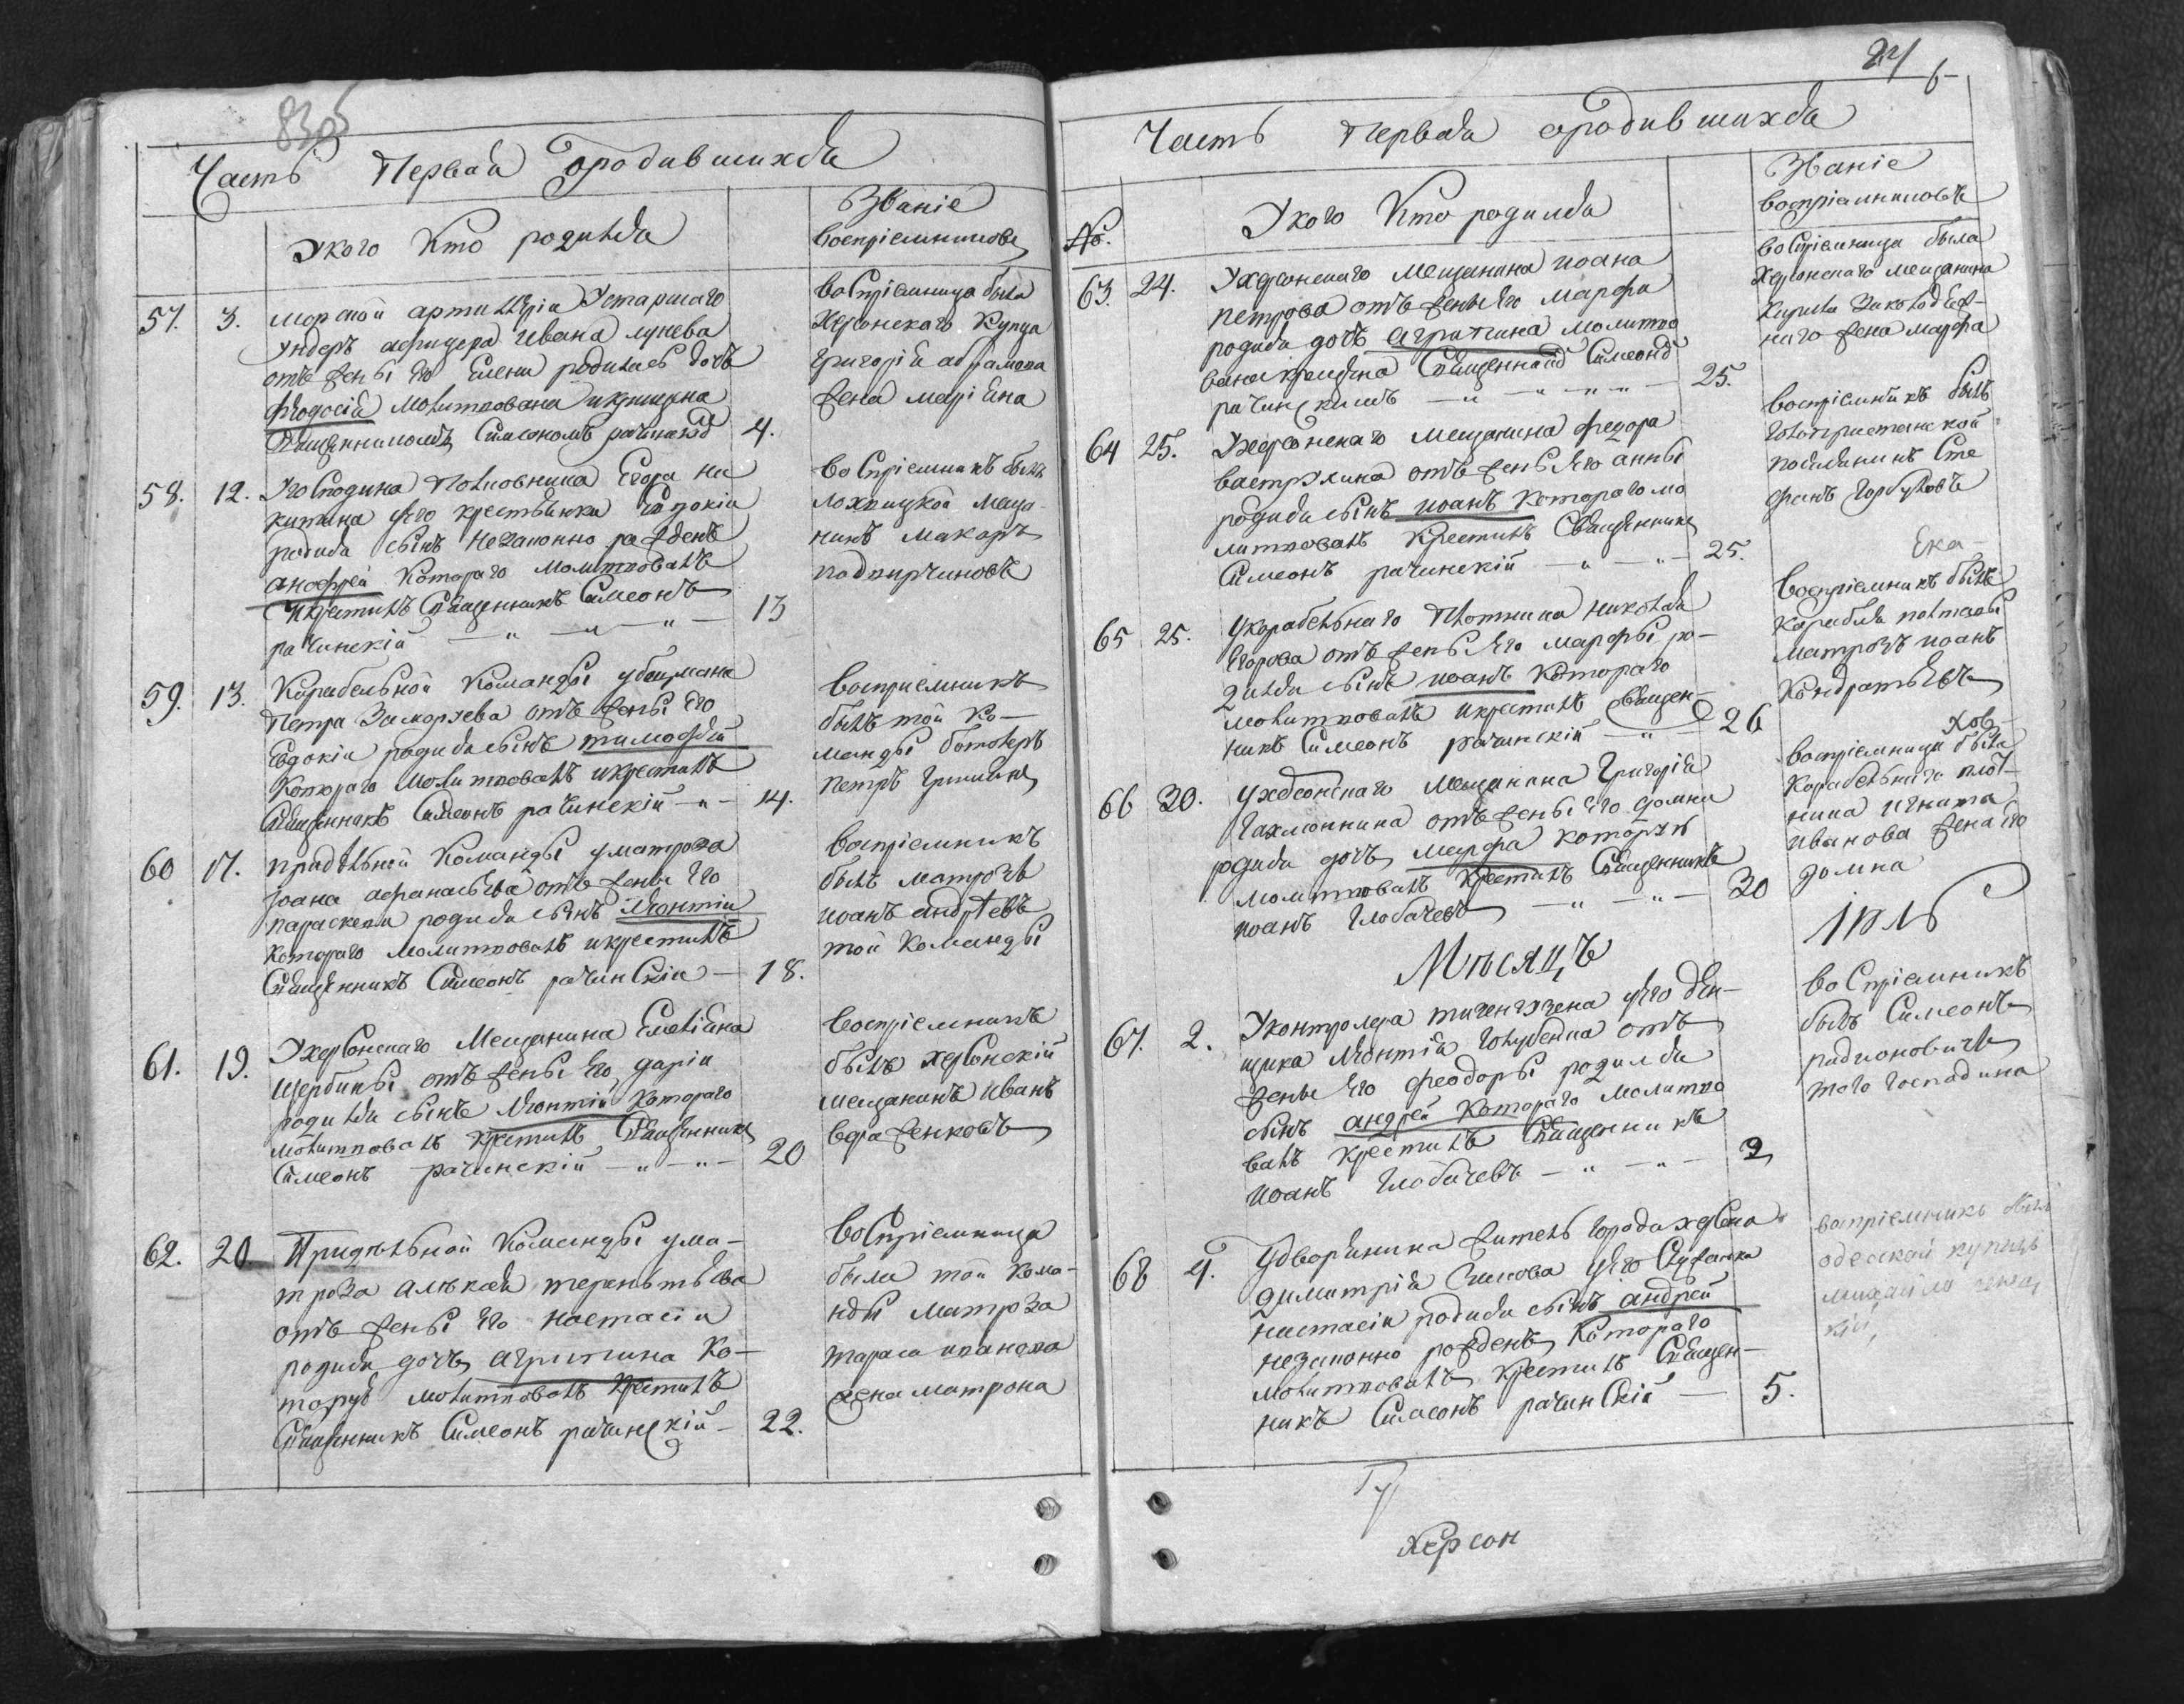 83об
Часть Первая ородившихся
Укого Кто родился
Званіе
воспріемниковъ
57. 3. морской артиллеріи Устаршаго
ундеръ афицера Ивана лунева
отъ жены Его Елены родилась дочь
Феодосія молитвована икрещена
Священникомъ Симеономъ рачинскимъ 4.
воспріемница была
Херсонскаго Купца
Григорія абрамова
жена маріяна
58. 12. Угосподина Полковника Егора ни
китина унего крестьянки
родился сынъ незаконно рожденъ
анофрей Котораго молитвовалъ
икрестилъ Священникъ Симеонъ
рачинскій — „ — „ — „ — 13
воспріемникъ былъ
лохвицкой меща-
нинъ макаръ
подпиртиновъ
59. 13. Карабельной Команды у
Петра отъ жены Его
Евдокіи родился сынъ тимофей
Котораго молитвовалъ икрестилъ
Священникъ Симеонъ рачинскій — „ — 14.
воспріемникъ
былъ той Ко-
манды
петръ
60 17. прадельной Команды уматроза
іоана афанасьева отъ жены Его
параскевы родился сынъ Леонтій
Котораго молитвовалъ икрестилъ
Священникъ Симеонъ рачинскій — 18.
воспріемникъ
былъ матрозъ
иоанъ андреевъ
той Команды
61. 19. Ухерсонскаго Мещанина Емелiяна
щербины отъ жены Его даріи
родился сынъ Леонтій Котораго
молитвовалъ крестилъ Священникъ
Симеонъ рачинскій — „ — „ — 20
воспріемникъ
былъ херсонскій
мещанинъ Иванъ
62. 20 Придельной Команды ума-
троза алексея терентьева
отъ жены Его настасіи
родися дочь агрипина Ко-
торую молитвовалъ крестилъ
Священникъ Симеонъ рачинскій — 22.
воспріемница
была той Кома-
нды матроза
тараса
жена матрона
84
Часть Первая ородившихся
№.
Укого Кто родился
Званіе
воспріемниковъ
63. 24. Ухерсонскаго Мещанина иоана
петрова отъ жены Его марфы
родися дочь агрипина молитво
вана крещена Священникомъ Симеономъ
рачинскимъ — „ — „ — „ — 25.
воспріемница была
Херсонскаго мещанина
Кирила
жена марфа
64 25. Ухерсонскаго мещанина федора
отъ жены Его анны
родися сынъ иоанъ Котораго мо
литвовалъ Крестилъ Священникъ
Симеонъ рачинскій — „ — „ — 25.
воспріемникъ былъ
голопристанской
поселянинъ Сте
фанъ Горбуновъ
Ека-
65 25. Укорабельнаго Плотника николая
Егорова отъ жены Его марфы ро-
дился сынъ иоанъ Котораго
молитвовалъ икрестилъ Священ-
никъ Симеонъ рачинскій — „ — 26
воспріемникъ былъ
карабля полтавы
матрозъ иоанъ
Кондратьевъ
66 30. Ухерсонскаго Мещанина Григорія
отъ жены Его домны
родися дочь марфа которую
молитвовалъ Крестилъ Священникъ
иоанъ Глобачевъ — „ — „ — 30
воспріемница была
Карабельнаго плот-
ника игната
иванова жена Его
домна
Мѣсяцъ іюль
67. 2. Уконтролера унего ден-
щика Леонтія отъ
жены Его феодоры родился
сынъ андрей Котораго молитво
валъ крестилъ Священникъ
иоанъ Глобачевъ — „ — „ — 2
воспріемникъ
былъ Симеонъ
радионовичъ
того господина
68 4. Удворянина житель города херсона
Димитрія унего
настасіи родися сынъ андрей
незаконно рожденъ Котораго
молитвовалъ крестилъ Священ-
никъ Симеонъ рачинскій — 5.
воспріемникъ былъ
одесской купецъ
михайло
Херсон